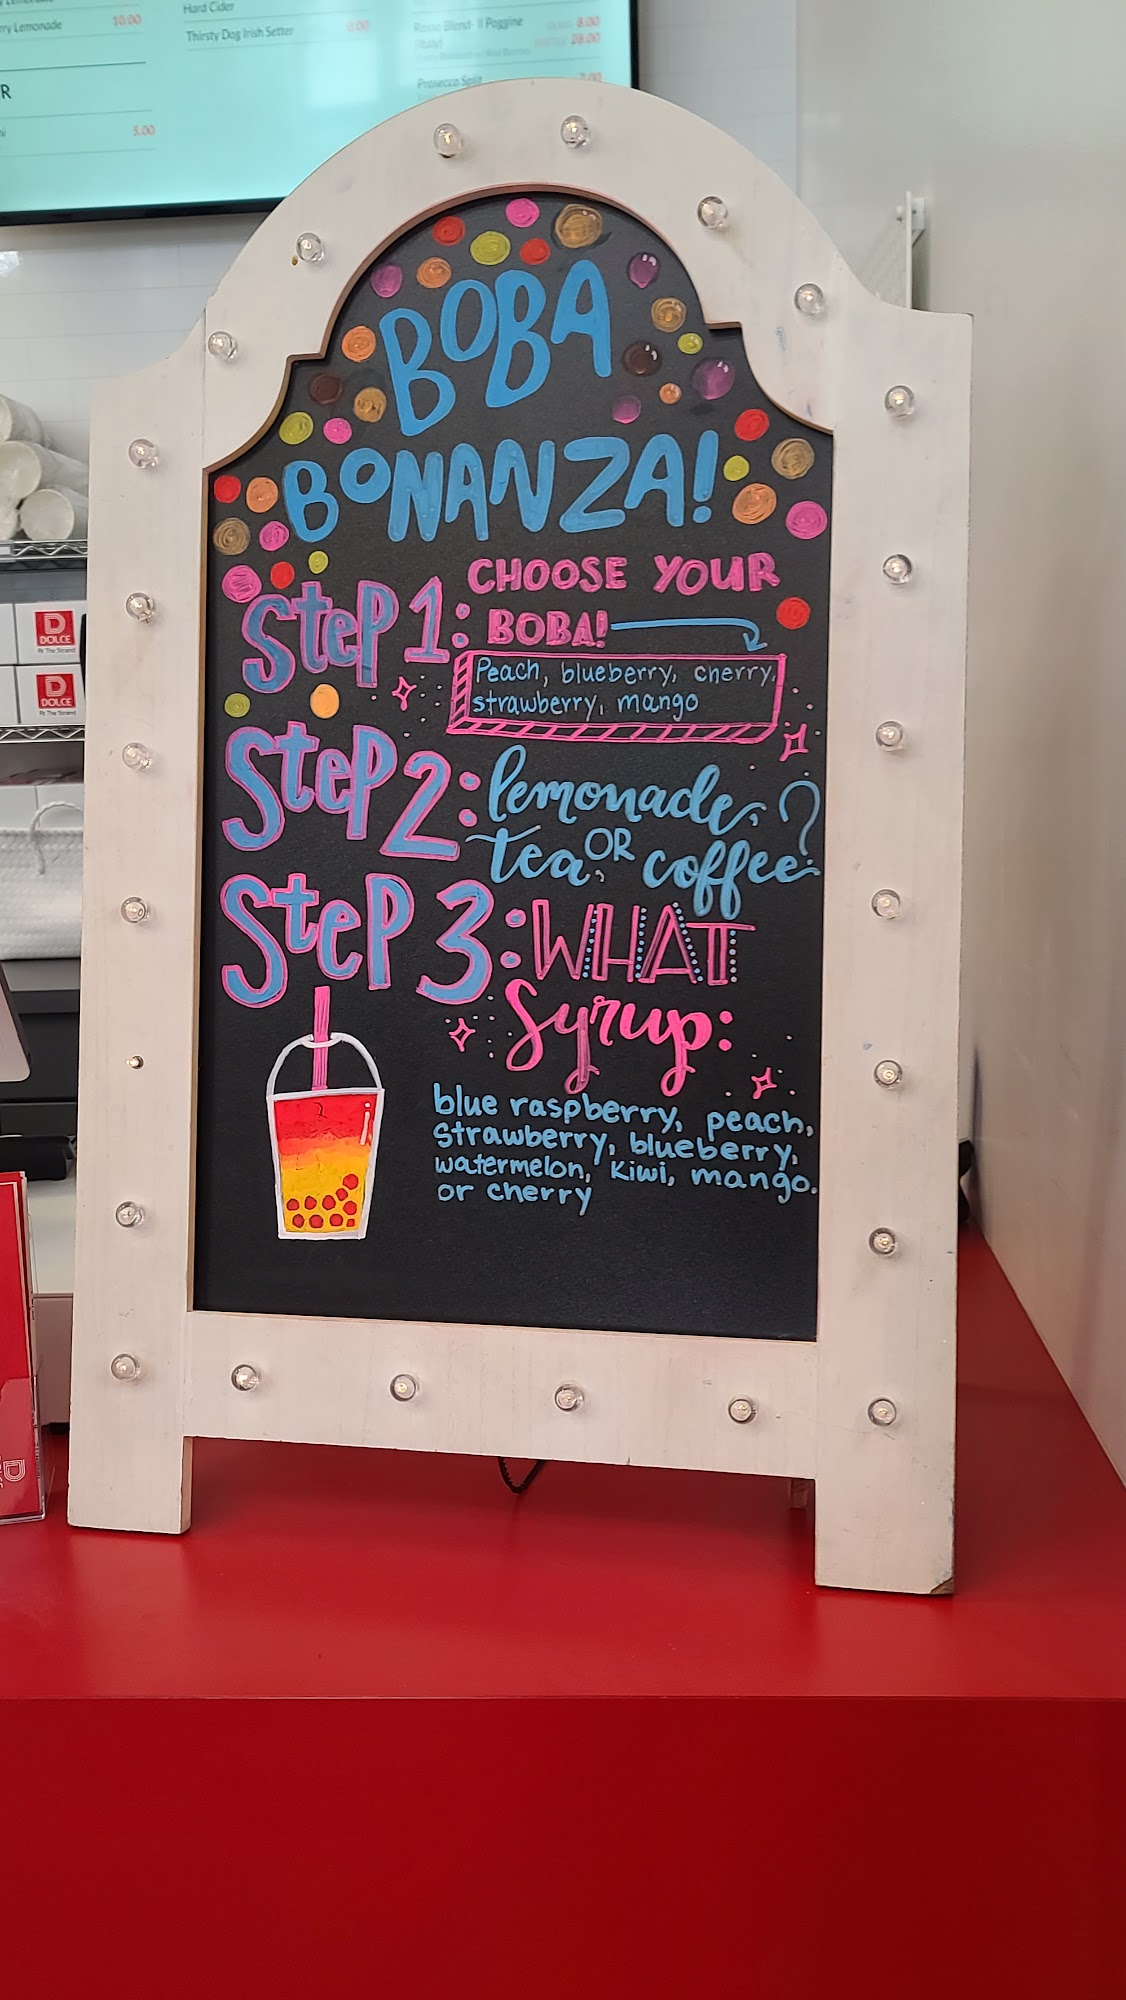 Lemonade 10.00
R
5.00
Hard Cider
Thirsty Dog Irish Setter
Rosso Blend- Il Poggine 8.00
(Italy) 28.00
Prosecco Split
BOBA
BONANZA!
STEP 1: CHOOSE YOUR
BOBA!
Peach, blueberry, cherry,
strawberry, mango
STEP 2: lemonade,
tea, OR coffee?
STEP 3: WHAT
Syrup:
blue raspberry, peach,
strawberry, blueberry,
watermelon, kiwi, mango,
or cherry
D
DOLCE
At The Strand
D
DOLCE
At The Strand
D